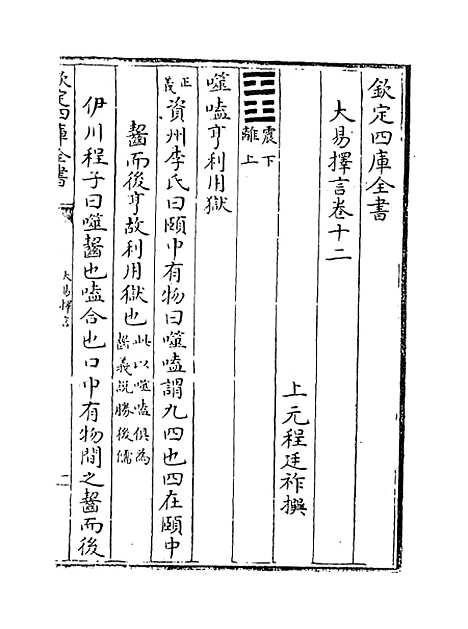 欽定四庫全書
大易擇言卷十二
上元程廷祚撰
震下
離上
噬嗑亨利用獄
正義
資州李氏曰頤中有物曰噬嗑謂九四也四在頤中
齧而後亨故利用獄也此以噬嗑俱為
齧義説勝後儒
伊川程子曰噬齧也嗑合也口中有物間之齧而後
欽定四庫全書
大易擇言